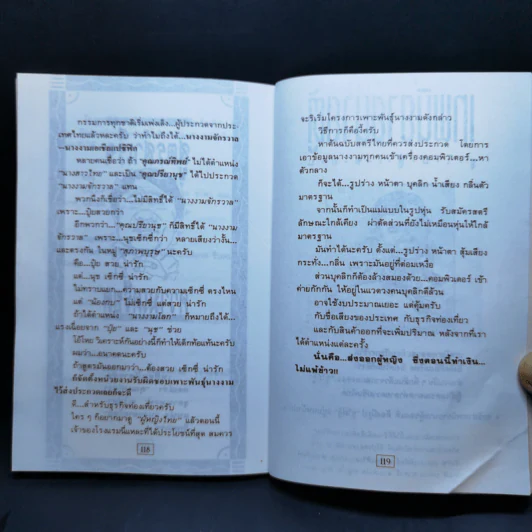 กรรมการทุกชาติเริ่มเพ่งเล็ง...ผู้ประกวดจากประ-
เทศไทยแล้วหละครับ ว่าทำไมถึงได้...นางงามจักรวาล
...นางงามเอเชียแปซิฟิค
หลายคนเชื่อว่า ถ้า "คุณภรณ์ทิพย์" ไม่ได้ตำแหน่ง
"นางสาวไทย" และเป็น "คุณปรียานุช" ได้ไปประกวด
"นางงามจักรวาล" แทน
พวกนึงก็เชื่อว่า...ไม่มีสิทธิ์ได้ "นางงามจักรวาล"
เพราะ...ปุ๋ยสวยกว่า
อีกพวกว่า..."คุณปรียานุช" ก็มีสิทธิ์ได้ "นางงาม
จักรวาล" เพราะ...นุชเซ็กซี่กว่า หลายเสียงว่างั้น...
และตรงกัน ในหมู่ "สุภาพบุรุษ" นะครับ
คือ...ปุ๋ย สวย น่ารัก
แต่...นุช เซ็กซี่ น่ารัก
ไม่ทราบแฮะ...ความสวยกับความเซ็กซี่ ตรงไหน
แต่ "น้องกบ" ไม่เซ็กซี่ แต่สวย น่ารัก
ถ้าได้ตำแหน่ง "นางงามโลก" ก็หมายถึงได้...
แรงเฉื่อยจาก "ปุ๋ย" และ "นุช" ช่วย
โอ้โฮะ วิเคราะห์กันอย่างนี้ก็ทำให้เลิกท้อแท้นะครับ
ผมว่า...อนาคตนะครับ
ถ้าสูตรมันออกมาว่า...ต้องสวย เซ็กซี่ น่ารัก
ก็จัดตั้งหน่วยงานรับผิดชอบเพาะพันธุ์นางงาม
ไว้ส่งประกวดเลยก็จะดี
ดี...สำหรับธุรกิจท่องเที่ยวครับ
ใคร ๆ ก็อยากมาดู "ผู้หญิงไทย" แล้วตอนนี้
เจ้าของโรงแรมนี่แหละที่ได้ประโยชน์ที่สุด สมควร
118
จะริเริ่มโครงการเพาะพันธุ์นางงามดังกล่าว
วิธีการก็คืองี้ครับ
หาต้นฉบับสตรีไทยที่ควรส่งประกวด โดยการ
เอาข้อมูลนางงามทุกคนเข้าเครื่องคอมพิวเตอร์...หา
ตัวกลาง
ก็จะได้...รูปร่าง หน้าตา บุคลิก น้ำเสียง กลิ่นตัว
มาตรฐาน
จากนั้นก็ทำเป็นแม่แบบในรูปหุ่น รับสมัครสตรี
ลักษณะใกล้เคียง ผ่าตัดส่วนที่ยังไม่เหมือนหุ่นให้ใกล้
มาตรฐาน
มันทำได้นะครับ ตั้งแต่...รูปร่าง หน้าตา สุ้มเสียง
กระทั่ง...กลิ่น เพราะมันอยู่ที่ต่อมเหงื่อ
ส่วนบุคลิกก็ต้องล้างสมองด้วย...คอมพิวเตอร์ เข้า
ค่ายกักกัน ให้อยู่ในแวดวงคนบุคลิกดีล้วน
อาจใช้งบประมาณเยอะ แต่คุ้มครับ
กับชื่อเสียงของประเทศ กับธุรกิจท่องเที่ยว
และกับสินค้าออกที่จะเพิ่มปริมาณ หลังจากที่เรา
ได้ตำแหน่งแต่ละครั้ง
นั่นคือ...ส่งออกผู้หญิง ซึ่งตอนนี้ทำเงิน...
ไม่แพ้ข้าว!!
119